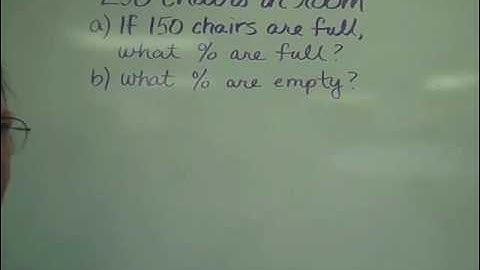 250 chairs in room
a) If 150 chairs are full,
what % are full?
b) what % are empty?